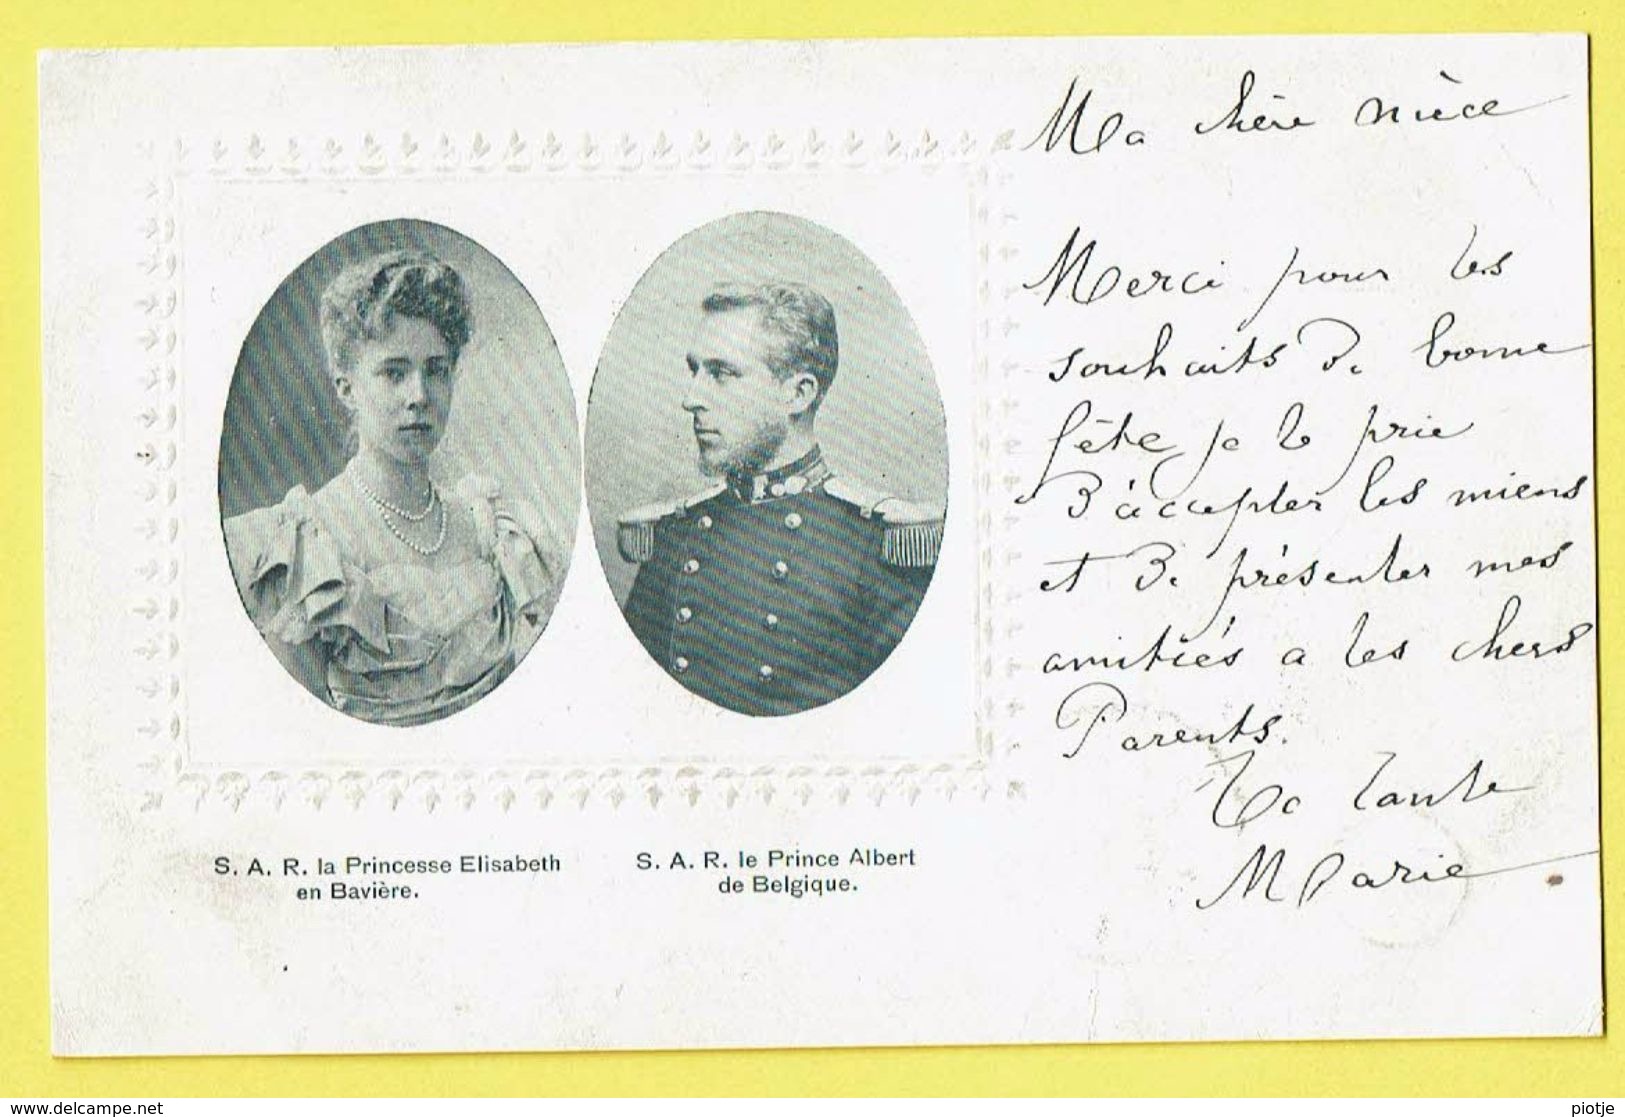 S. A. R. la Princesse Elisabeth
en Bavière.
S. A. R. le Prince Albert
de Belgique.
Ma chère nièce
Merci pour les
souhaits de bonne
fête je te prie
d'accepter les miens
et de présenter mes
amitiés a tes chers
Parents.
Ta tante
Marie
www.delcampe.net
piotje